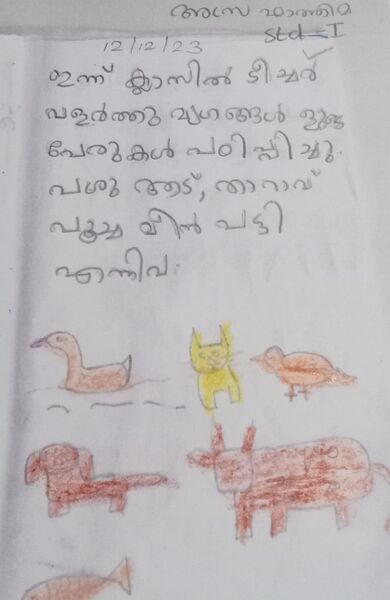 അസ്ര ഫാത്തിമ
Std-I
12/12/23
ഇന്ന് ക്ലാസിൽ ടീച്ചർ
വളർത്തു മൃഗങ്ങൾ
പേരുകൾ പഠിപ്പിച്ചു.
പശു ആട്, താറാവ്
പൂച്ച മീൻ പട്ടി
എന്നിവ.